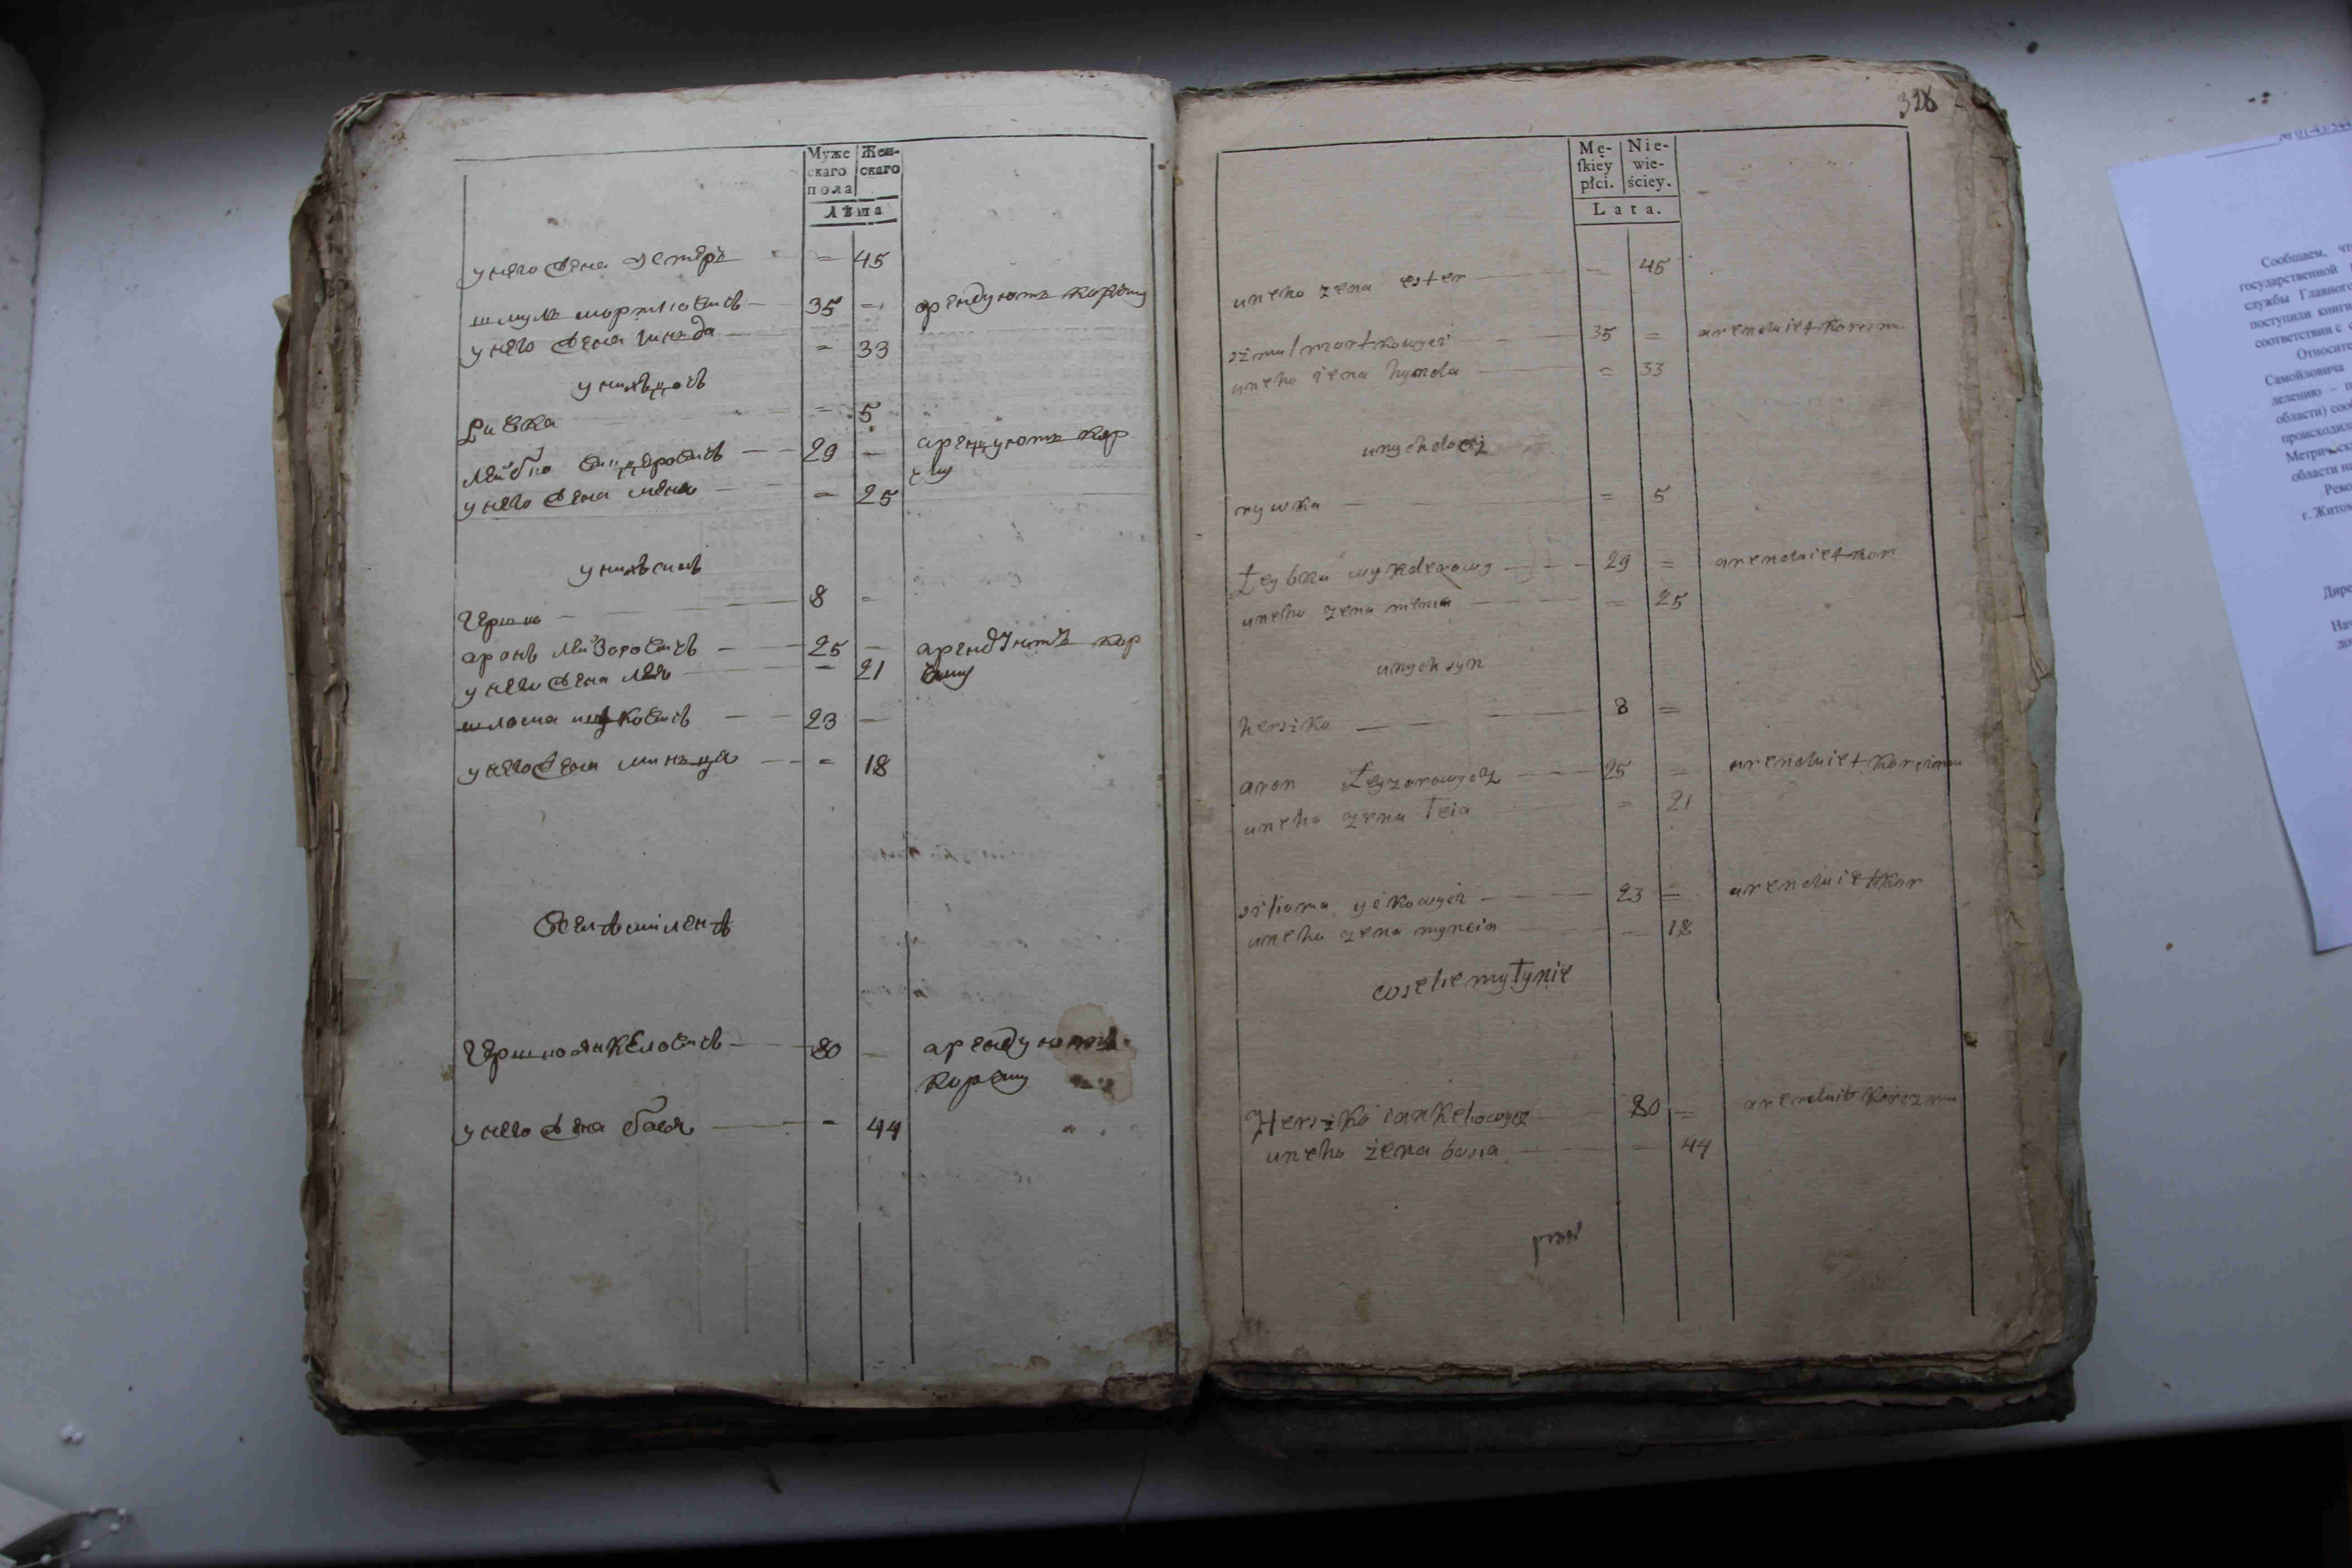 Муже
скаго
пола
Жен-
скаго
Лѣта
у него жена эстеръ — = 45
шмуль морткович — 35 = арендуютъ корчму
у него жена гинда — = 33
у нихъ дочь
Ривка = 5
лейбко виндерович — 29 — арендуютъ кор
чму
у него жена меня — = 25
у нихъ синъ
Гершко — 8 =
аронъ лейзорович — 25 — арендуютъ кор
чму
у него жена лея — = 21
шлома ицкович — 23 —
у него жена минця — = 18
Гершко янкелович — 80 — арендуютъ
корчму
у него жена бася — = 44
328
Mę-
ſkiey
płci.
Nie-
wie-
ściey.
Lata.
uneho zena ester — = 45
szmul mortkowycz — 35 = arenduiet korczmu
uneho żena hynda — = 33
unych docz
rywka — = 5
Leybka wynderowy — 29 = arenduiet kor
uneho zena menia — = 25
unych syn
herszko — 8 =
aron Leyzorowycz — 25 = arenduiet korczmu
uneho zena leia — = 21
szloma yckowycz — 23 = arenduiet kor
uneho zena myncia — 18
wsele mytynie
Herszko iankelowycz — 80 = arenduit korczmu
uneho żena basia — 44
Сообщаем, чт
государственной
службы Главного
поступили книги
соответствии с
Относите
Самойловича
делению – п
области) соо
происходил
Метрическ
области на
Реко
г. Житом
Дире
На